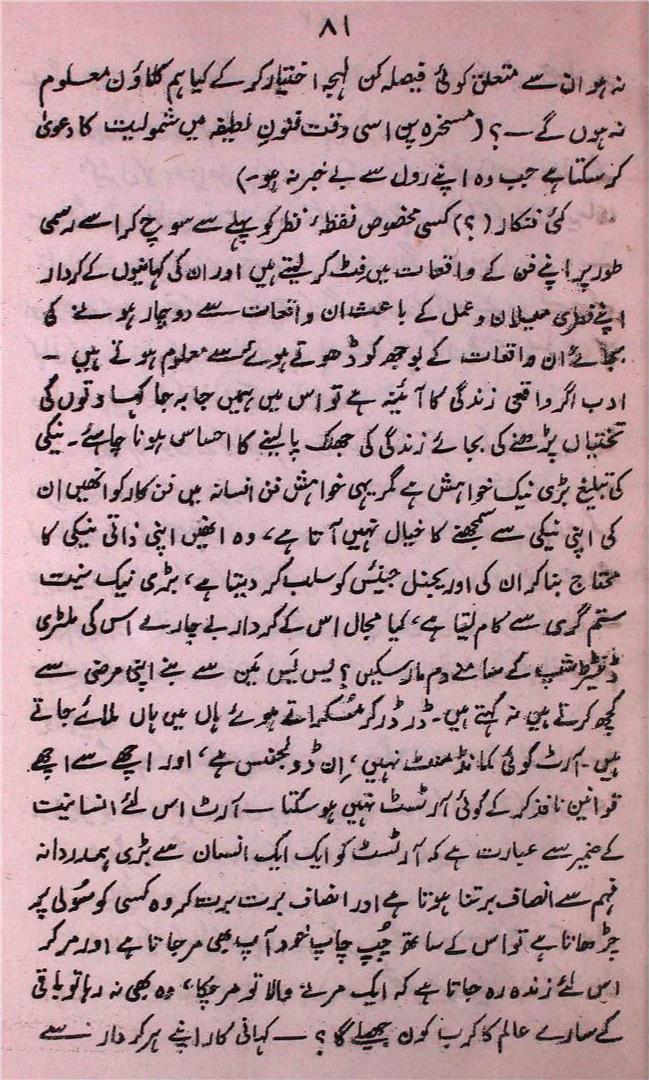 ۸۱
نہ ہو ان سے متعلق کوئی فیصلہ کن لہجہ اختیار کر کے کیا ہم کلاؤن معلوم
نہ ہوں گے ــ؟ (مسخرہ پن اسی وقت فنونِ لطیفہ میں شمولیت کا دعویٰ
کر سکتا ہے جب وہ اپنے رول سے بے خبر نہ ہو۔)
کئی فنکار (؟) کسی مخصوص نقطۂ نظر کو پہلے سے سوچ کر اسے رسمی
طور پر اپنے فن کے واقعات میں فِٹ کر لیتے ہیں اور ان کی کہانیوں کے کردار
اپنے فطری میلان و عمل کے باعث ان واقعات سے دوچار ہونے کی
بجائے ان واقعات کے بوجھ کو ڈھوتے ہوئے سے معلوم ہوتے ہیں ــ
ادب اگر واقعی زندگی کا آئینہ ہے تو اس میں ہمیں جا بہ جا کہاوتوں کی
تختیاں پڑھنے کی بجائے زندگی کی جھلک پا لینے کا احساس ہونا چاہئے۔ نیکی
کی تبلیغ بڑی نیک خواہش ہے مگر یہی خواہش فن افسانہ میں فن کار کو انھیں ان
کی اپنی نیکی سے سمجھنے کا خیال نہیں آتا ہے، وہ انھیں اپنی ذاتی نیکی کا
محتاج بنا کر ان کی اوریجنل جینئس کو سلب کر دیتا ہے، بڑی نیک نیت
ستم گری سے کام لیتا ہے، کیا مجال اس کے کردار بے چارے اس کی ملٹری
ڈکٹیٹر شپ کے سامنے دم مار سکیں؟ یس یَس مَین سے بنے اپنی مرضی سے
کچھ کرتے ہیں نہ کہتے ہیں۔ ڈر ڈر کر مسکراتے ہوئے ہاں میں ہاں ملائے جاتے
ہیں۔ آرٹ کوئی کمانڈمنٹ نہیں، اِن ڈولجنس ہے، اور اچھے سے اچھے
قوانین نافذ کر کے کوئی آرٹسٹ نہیں ہو سکتا ــ آرٹ اس لئے انسانیت
کے ضمیر سے عبارت ہے کہ آرٹسٹ کو ایک ایک انسان سے بڑی ہمدردانہ
فہم سے انصاف برتنا ہوتا ہے اور انصاف برت برت کر وہ کسی کو سُولی پر
چڑھاتا ہے تو اس کے ساتھ چُپ چاپ خود آپ بھی مر جاتا ہے اور مر کر
اس لئے زندہ رہ جاتا ہے کہ ایک مرنے والا تو مر چکا، وہ بھی نہ رہا تو باقی
کے سارے عالم کا کرب کون جھیلے گا؟ ــ کہانی کار اپنے ہر کردار سے